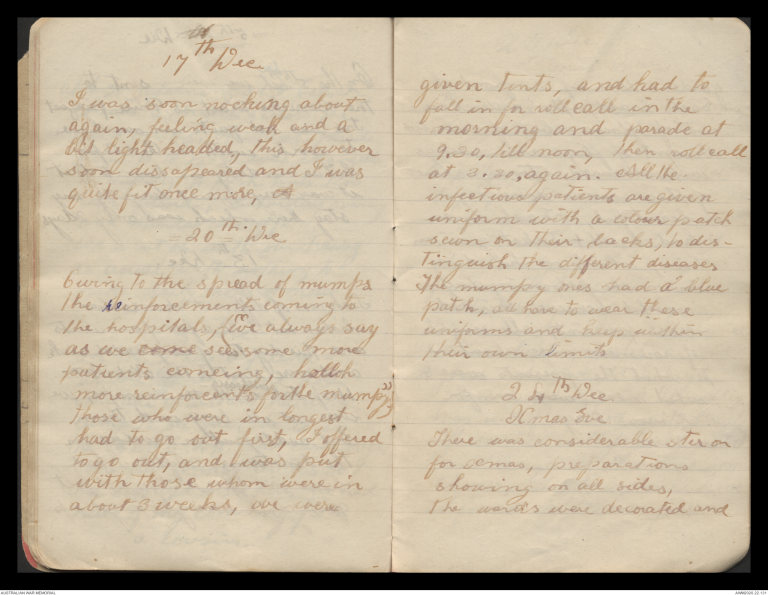 17th Dec
I was soon nocking about
again, feeling weak and a
bit light headed, this however
soon dissapeared and I was
quite fit once more, A
20th Dec
Owing to the spread of mumps
the reinforcements coming to
the hospitals, (we always say
as we come see some more
patients comeing, halloh
more reinforcents for the mumps)
those who were in longest
had to go out first, I offered
to go out, and was put
with those whom were in
about 3 weeks, we were
given tents, and had to
fall in for roll call in the
morning and parade at
9.30, till noon, then roll call
at 3.30, again. All the
infectious patients are given
uniform with a colour patch
sewn on their backs, to dis-
tinguish the different diseases
The mumpy ones had a blue
patch, all have to wear these
uniforms and keep within
their own limits
24th Dec
Xmas Eve
There was considerable
for Xmas, preparations
showing on all sides,
the wards were decorated and
AUSTRALIAN WAR MEMORIAL